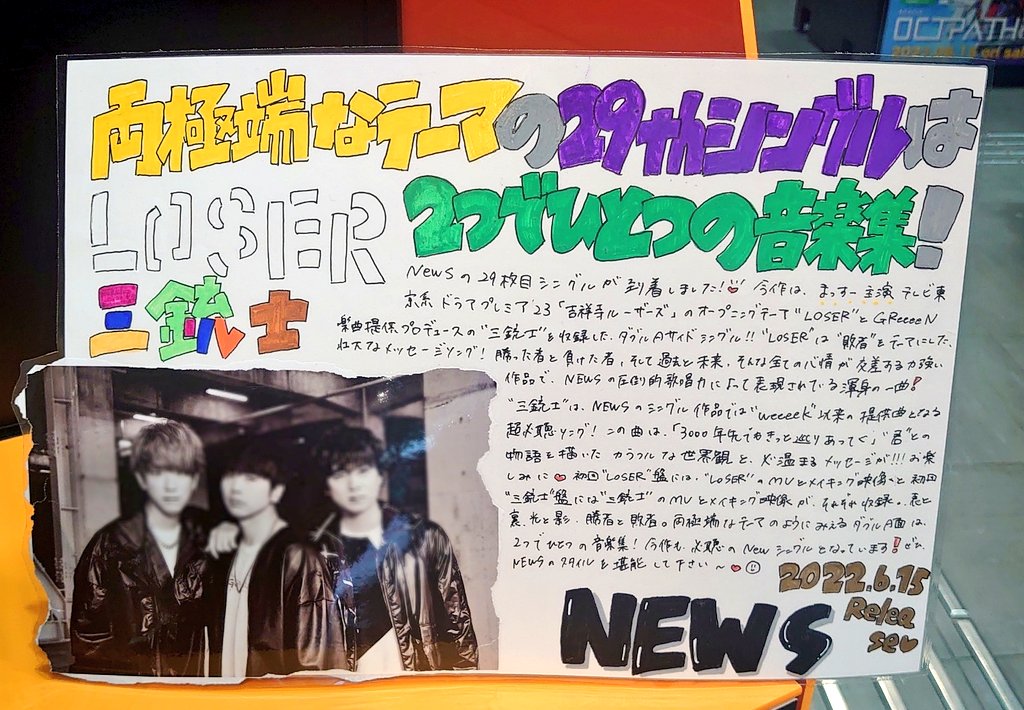 OCTPATH
両極端なテーマの29thシングルは
LOSER
三銃士
2つでひとつの音楽集!
NEWSの29枚目シングルが到着しました!♡ 今作は、まっすー主演テレビ東
京系ドラマプレミア'23「吉祥寺ルーザーズ」のオープニングテーマ"LOSER"とGReeeeN
楽曲提供プロデュースの"三銃士"を収録した、ダブルAサイドシングル!!"LOSER"は"敗者"をテーマにした、
壮大なメッセージソング!勝った者と負けた者、そして過去と未来、そんな全ての心情が交差する力強い
作品で、NEWSの圧倒的歌唱力によって表現されている渾身の一曲!
"三銃士"は、NEWSのシングル作品では"weeeek"以来の提供曲となる
超必聴ソング!この曲は、「3000年先でもきっと巡りあってく」"君"との
物語を描いたカラフルな世界観と、心温まるメッセージが!!!お楽
しみに♥ 初回"LOSER"盤には、"LOSER"のMVとメイキング映像、初回
"三銃士"盤には"三銃士"のMVとメイキング映像が、それぞれ収録。表と
裏、光と影、勝者と敗者。両極端なテーマのようにみえるダブルA面は、
2つでひとつの音楽集!今作も必聴のNewシングルとなっています!ぜひ、
NEWSのスタイルを堪能して下さい〜♥☺
2022.6.15
Relea
se
NEWS